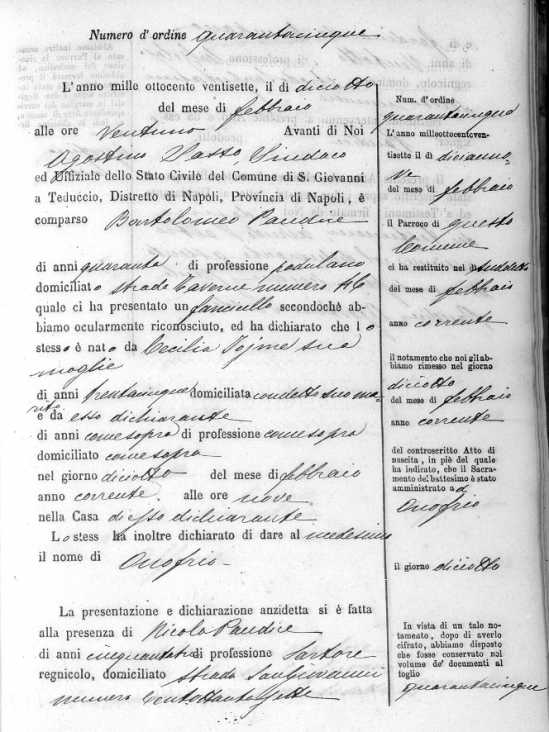 Numero d' ordine quarantacinque
L'anno mille ottocento ventisette, il di diciotto
del mese di febbraio
alle ore ventuno Avanti di Noi
Agostino Sindaco
ed Uffiziale dello Stato Civile del Comune di S. Giovanni
a Teduccio, Distretto di Napoli, Provincia di Napoli, è
comparso Bartolomeo Pandice
di anni quaranta di professione padulano
domiciliato strada Taverne numero 46
quale ci ha presentato un fanciullo secondochè ab-
biamo ocularmente riconosciuto, ed ha dichiarato che lo
stesso è nato da Cecilia sua
moglie
di anni trentacinque domiciliata con detto suo ma-
rito
e da esso dichiarante
di anni come sopra di professione come sopra
domiciliato come sopra
nel giorno diciotto del mese di febbraio
anno corrente. alle ore nove
nella Casa di esso dichiarante
Lo stess ha inoltre dichiarato di dare al medesimo
il nome di Onofrio
La presentazione e dichiarazione anzidetta si è fatta
alla presenza di Nicola Pandice
di anni di professione Sartore
regnicolo, domiciliato Strada San Giovanni
numero Centottantasette
Num. d'ordine
quarantacinque
L'anno milleottocentoven-
tisette il di dicianno-
ve
del mese di febbraio
il Parroco di questo
Comune
ci ha restituito nel dì sudetto
del mese di febbraio
anno corrente
il notamento che noi gli ab-
biamo rimesso nel giorno
diciotto
del mese di febbraio
anno corrente
del controscritto Atto di
nascita, in piè del quale
ha indicato, che il Sacra-
mento del battesimo è stato
amministrato ad
Onofrio
il giorno diciotto
In vista di un tale no-
tameato, dopo di averlo
cifrato, abbiamo disposto
che fosse conservato nel
volume de' documenti al
foglio
quarantacinque